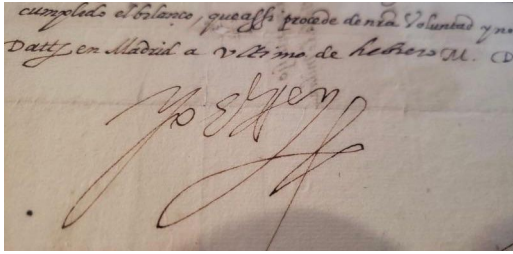 cumpledo el bilanço, que assi procede de nra voluntad y no
Datt en Madrid a Vltimo de hebrero M. (D
Yo el Rey